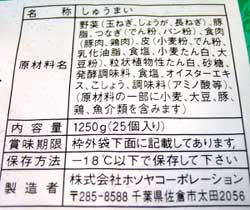 名 称 しゅうまい
原材料名 野菜(玉ねぎ、しょうが、長ねぎ)、豚
脂、つなぎ(でん粉、パン粉)、食肉
(豚肉、鶏肉)、皮(小麦粉、でん粉、
乳化油脂、食塩、小麦たん白、大
豆粉)、粒状植物性たん白、砂糖、
発酵調味料、食塩、オイスターエキ
ス、こしょう、調味料(アミノ酸等)、
(原材料の一部に小麦、大豆、豚
、鶏、魚介類を含みます)
内 容 量 1250g(25個入り)
賞味期限 枠外袋下面に記載してあります。
保存方法 −18℃以下で保存して下さい
製 造 者 株式会社ホソヤコーポレーション
〒285-8588 千葉県佐倉市太田2056